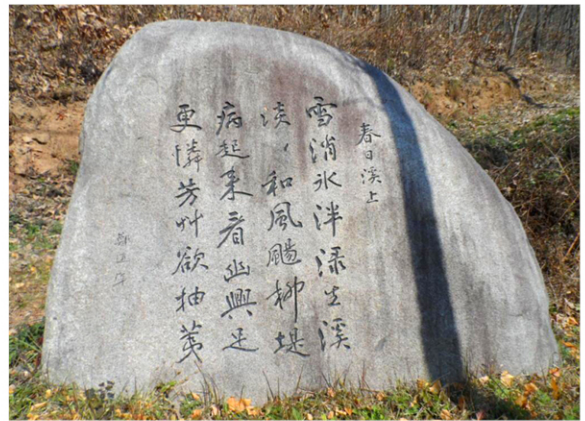 春日溪上
雪消氷泮淥生溪
淡〻和風颺柳堤
病起来看幽興足
更憐芳艸欲抽荑